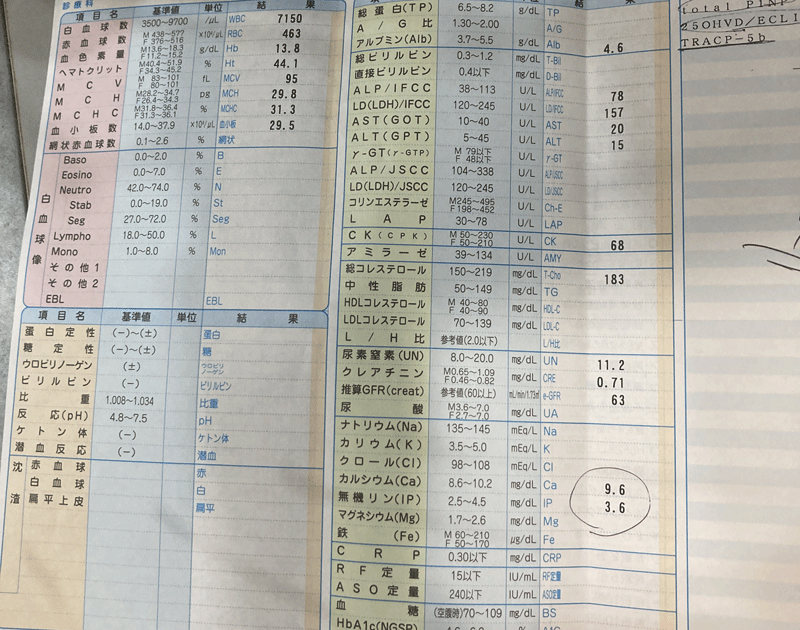 診療科
項目名 基準値 単位 結果
白血球数 3500～9700 /μL WBC 7150
赤血球数 M 438～577 F 376～516 ×10⁴/μL RBC 463
血色素量 M13.6～18.3 F11.2～15.2 g/dL Hb 13.8
ヘマトクリット M40.4～51.9 F34.3～45.2 % Ht 44.1
MCV M 83～101 F 80～101 fL MCV 95
MCH M28.2～34.7 F26.4～34.3 pg MCH 29.8
MCHC M31.8～36.4 F31.3～36.1 % MCHC 31.3
血小板数 14.0～37.9 ×10⁴/μL 血小板 29.5
網状赤血球数 0.1～2.6 % 網状
白血球像
Baso 0.0～2.0 % B
Eosino 0.0～7.0 % E
Neutro 42.0～74.0 % N
Stab 0.0～19.0 % St
Seg 27.0～72.0 % Seg
Lympho 18.0～50.0 % L
Mono 1.0～8.0 % Mon
その他1
その他2
EBL EBL
項目名 基準値 単位 結果
蛋白定性 (－)～(±) 蛋白
糖定性 (－)～(±) 糖
ウロビリノーゲン (±) ウロビリノーゲン
ビリルビン (－) ビリルビン
比重 1.008～1.034 比重
反応(pH) 4.8～7.5 pH
ケトン体 (－) ケトン体
潜血反応 (－) 潜血
沈渣
赤血球 赤
白血球 白
扁平上皮 扁平
項目名 基準値 単位 結果
総蛋白(TP) 6.5～8.2 g/dL TP
A/G比 1.30～2.00 A/G
アルブミン(Alb) 3.7～5.5 g/dL Alb 4.6
総ビリルビン 0.3～1.2 mg/dL T-Bil
直接ビリルビン 0.4以下 mg/dL D-Bil
ALP/IFCC 38～113 U/L ALP/IFCC 78
LD(LDH)/IFCC 120～245 U/L LD/IFCC 157
AST(GOT) 10～40 U/L AST 20
ALT(GPT) 5～45 U/L ALT 15
γ-GT(γ-GTP) M 79以下 F 48以下 U/L γ-GT
ALP/JSCC 104～338 U/L ALP/JSCC
LD(LDH)/JSCC 120～245 U/L LD/JSCC
コリンエステラーゼ M245～495 F198～452 U/L Ch-E
LAP 30～78 U/L LAP
CK(CPK) M 50～230 F 50～210 U/L CK 68
アミラーゼ 39～134 U/L AMY
総コレステロール 150～219 mg/dL T-Cho 183
中性脂肪 50～149 mg/dL TG
HDLコレステロール M 40～80 F 40～90 mg/dL HDL-C
LDLコレステロール 70～139 mg/dL LDL-C
L/H比 参考値(2.0以下) L/H比
尿素窒素(UN) 8.0～20.0 mg/dL UN 11.2
クレアチニン M0.65～1.09 F0.46～0.82 mg/dL CRE 0.71
推算GFR(creat) 参考値(60以上) mL/min/1.73㎡ e-GFR 63
尿酸 M3.6～7.0 F2.7～7.0 mg/dL UA
ナトリウム(Na) 135～145 mEq/L Na
カリウム(K) 3.5～5.0 mEq/L K
クロール(Cl) 98～108 mEq/L Cl
カルシウム(Ca) 8.6～10.2 mg/dL Ca 9.6
無機リン(IP) 2.5～4.5 mg/dL IP 3.6
マグネシウム(Mg) 1.7～2.6 mg/dL Mg
鉄(Fe) M 60～210 F 50～170 μg/dL Fe
CRP 0.30以下 mg/dL CRP
RF定量 15以下 IU/mL RF定量
ASO定量 240以下 IU/mL ASO定量
血糖 (空腹時)70～109 mg/dL BS
HbA1c(NGSP)
total P1NP
25OHVD/ECLI
TRACP-5b